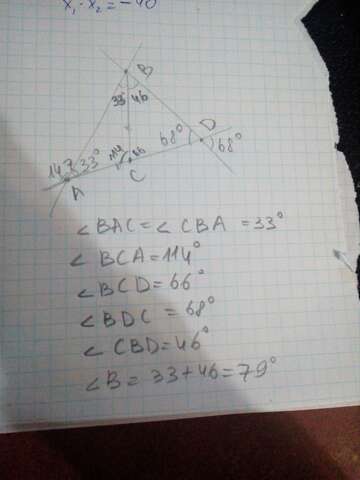 x₁·x₂=-40
B
33° 46
68° D
68°
147 33° 114 66
A C
∠BAC=∠CBA=33°
∠BCA=114°
∠BCD=66°
∠BDC=68°
∠CBD=46°
∠B=33+46=79°